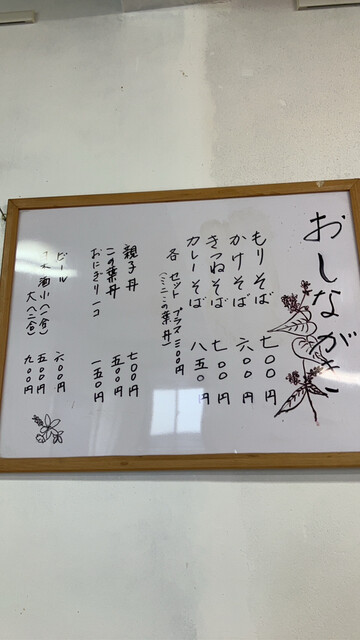 おしながき
もりそば 七〇〇円
かけそば 六〇〇円
きつねそば 七〇〇円
カレーそば 八五〇円
各 セット プラス三〇〇円
(ミニこの葉丼)
親子丼 七〇〇円
この葉丼 五〇〇円
おにぎり一コ 一五〇円
ビール 六〇〇円
酒 小(一合) 五〇〇円
大(二合) 九〇〇円